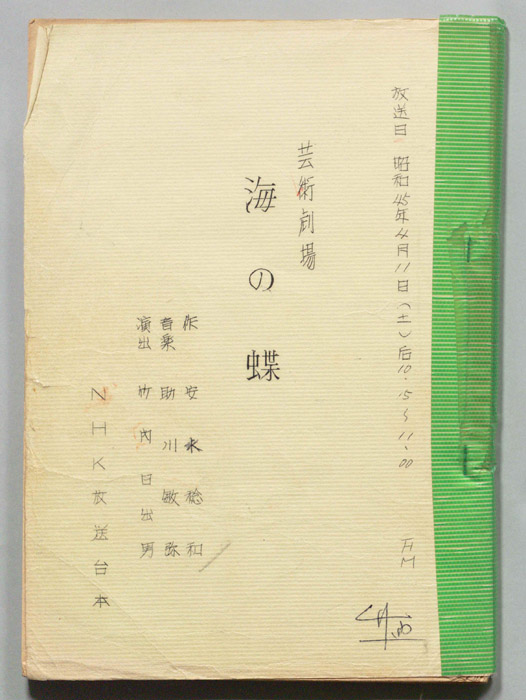 放送日 昭和45年4月11日（土）后10.15〜11.00 FM
芸術劇場
海の蝶
作 安水稔和
音楽 助川敏弥
演出 竹内日出男
NHK放送台本